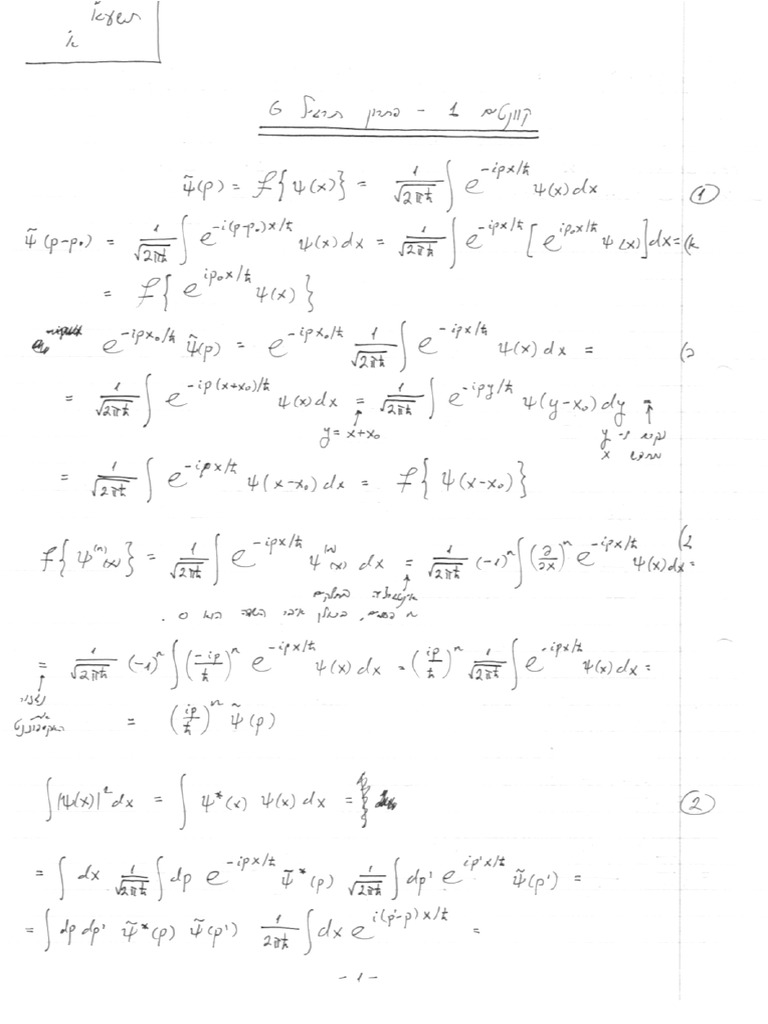 תשע"א
א'
קוונטים 1 - פתרון תרגיל 6
ψ̃(p) = ℱ{ψ(x)} = 1/√(2πħ) ∫ e^{-ipx/ħ} ψ(x) dx ①
ψ̃(p-p₀) = 1/√(2πħ) ∫ e^{-i(p-p₀)x/ħ} ψ(x) dx = 1/√(2πħ) ∫ e^{-ipx/ħ} [e^{ip₀x/ħ} ψ(x)] dx = (א
= ℱ{e^{ip₀x/ħ} ψ(x)}
e^{-ipx₀/ħ} ψ̃(p) = e^{-ipx₀/ħ} 1/√(2πħ) ∫ e^{-ipx/ħ} ψ(x) dx = (ב
= 1/√(2πħ) ∫ e^{-ip(x+x₀)/ħ} ψ(x) dx = 1/√(2πħ) ∫ e^{-ipy/ħ} ψ(y-x₀) dy =
↑ y = x+x₀ ↑ נקרא ל-y
מחדש x
= 1/√(2πħ) ∫ e^{-ipx/ħ} ψ(x-x₀) dx = ℱ{ψ(x-x₀)}
ℱ{ψ^{(n)}(x)} = 1/√(2πħ) ∫ e^{-ipx/ħ} ψ^{(n)}(x) dx = 1/√(2πħ) (-1)ⁿ ∫ (∂/∂x)ⁿ e^{-ipx/ħ} ψ(x) dx = (ג
↑ אינטגרציה בחלקים
n פעמים, כאשר איבר השפה הוא 0.
= 1/√(2πħ) (-1)ⁿ ∫ (-ip/ħ)ⁿ e^{-ipx/ħ} ψ(x) dx = (ip/ħ)ⁿ 1/√(2πħ) ∫ e^{-ipx/ħ} ψ(x) dx =
↑ נגזור
האקספוננט
= (ip/ħ)ⁿ ψ̃(p)
∫|ψ(x)|² dx = ∫ ψ*(x) ψ(x) dx = ②
= ∫ dx 1/√(2πħ) ∫ dp e^{-ipx/ħ} ψ̃*(p) 1/√(2πħ) ∫ dp' e^{ip'x/ħ} ψ̃(p') =
= ∫ dp dp' ψ̃*(p) ψ̃(p') 1/2πħ ∫ dx e^{i(p'-p)x/ħ} =
- 1 -